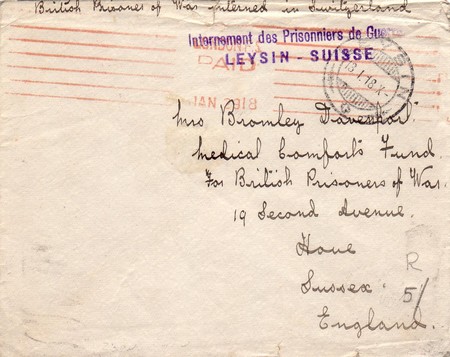 British Prisoner of War interned in Switzerland
Internement des Prisonniers de Guerre
LEYSIN - SUISSE
PAID
JAN 2918
LEYSIN
18.I.18.X
Mrs Bromley Davenport
Medical Comforts Fund.
For British Prisoners of War.
19 Second Avenue.
Hove
Sussex.
England.
R
5/